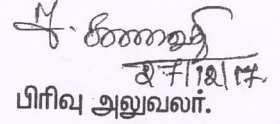 27/12/17.
பிரிவு அலுவலர்.